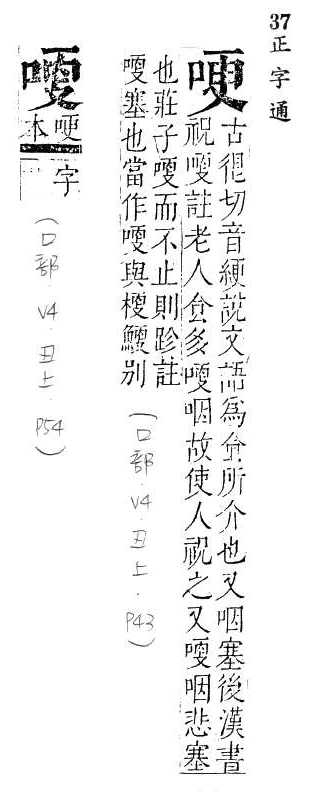 37 正字通
哽
古很切音綆說文語為食所介也又咽塞後漢書
祝哽註老人食多哽咽故使人祝之又哽咽悲塞
也莊子哽而不止則跈註
哽塞也當作哽與梗鯁別
(口部.V4.丑上.P43)
哽本字
(口部.V4.丑上.P54)